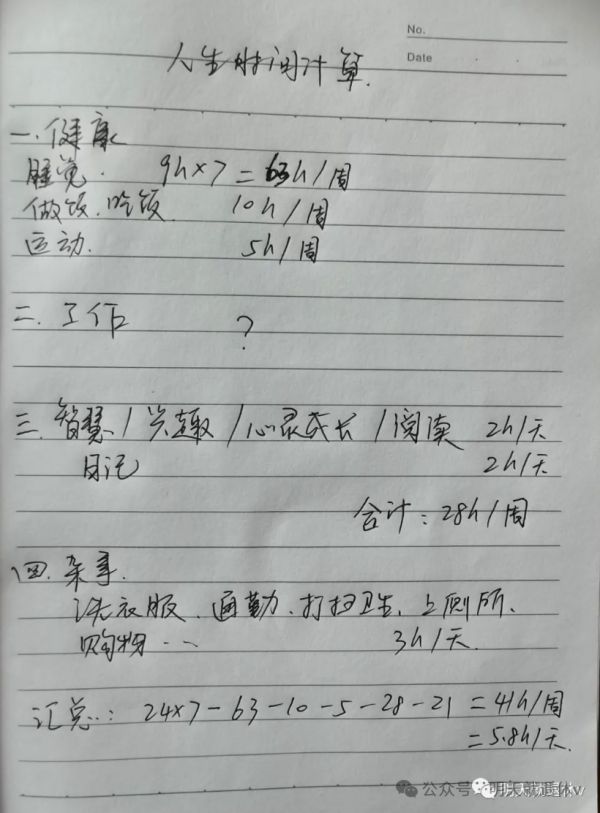 No.
Date
人生时间计算.
一.健康
睡觉. 9h×7=63h/周
做饭.吃饭 10h/周
运动. 5h/周
二.工作 ?
三.智慧/兴趣/心灵成长/阅读 2h/天
日记 2h/天
合计:28h/周
四.杂事.
洗衣服.通勤.打扫卫生.上厕所.
购物… 3h/天.
汇总:24×7-63-10-5-28-21=41h/周
=5.8h/天.
公众号